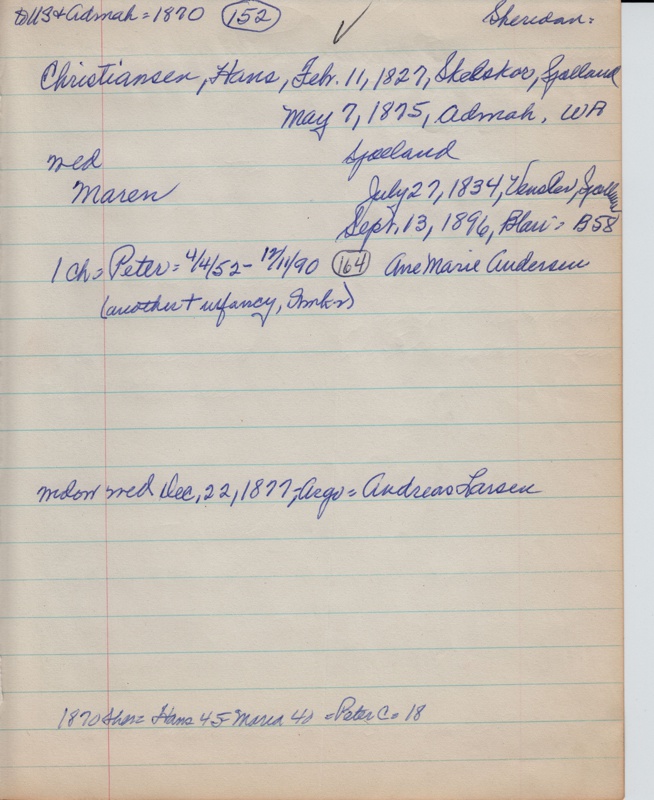 DUS+Admah=1870 (152) ✓ Sheridan=
Christiansen, Hans, Feb. 11, 1827, Skelskor, Sjoelland
May 7, 1875, Admah, WA
wed Sjoelland
Maren July 27, 1834, Venslev, Sjoelland
Sept. 13, 1896, Blair= B58
1 ch= Peter= 4/4/52- 12/11/90 (164) Ane Marie Andersen
(another + infancy, Dmk)
wdow wed Dec, 22, 1877, Argo= Andreas Larsen
1870 Sher= Hans 45 Maria 40 =Peter C= 18